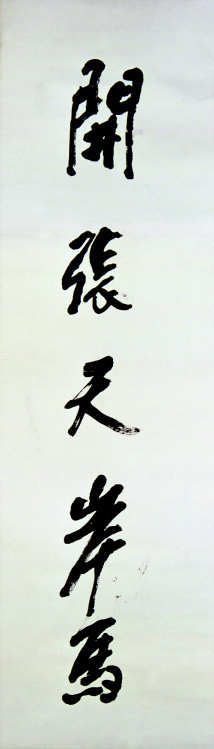 開張天岸馬